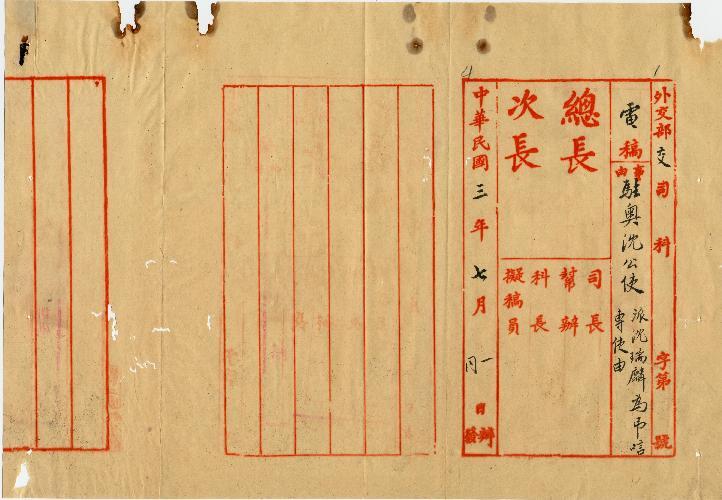 外交部交司 科 字第 號
電稿
事由
駐奧沈公使
派沈瑞麟為弔唁
專使由
總長
次長
司長
幫辦
科長
擬稿員
中華民國三年七月一日
日辦